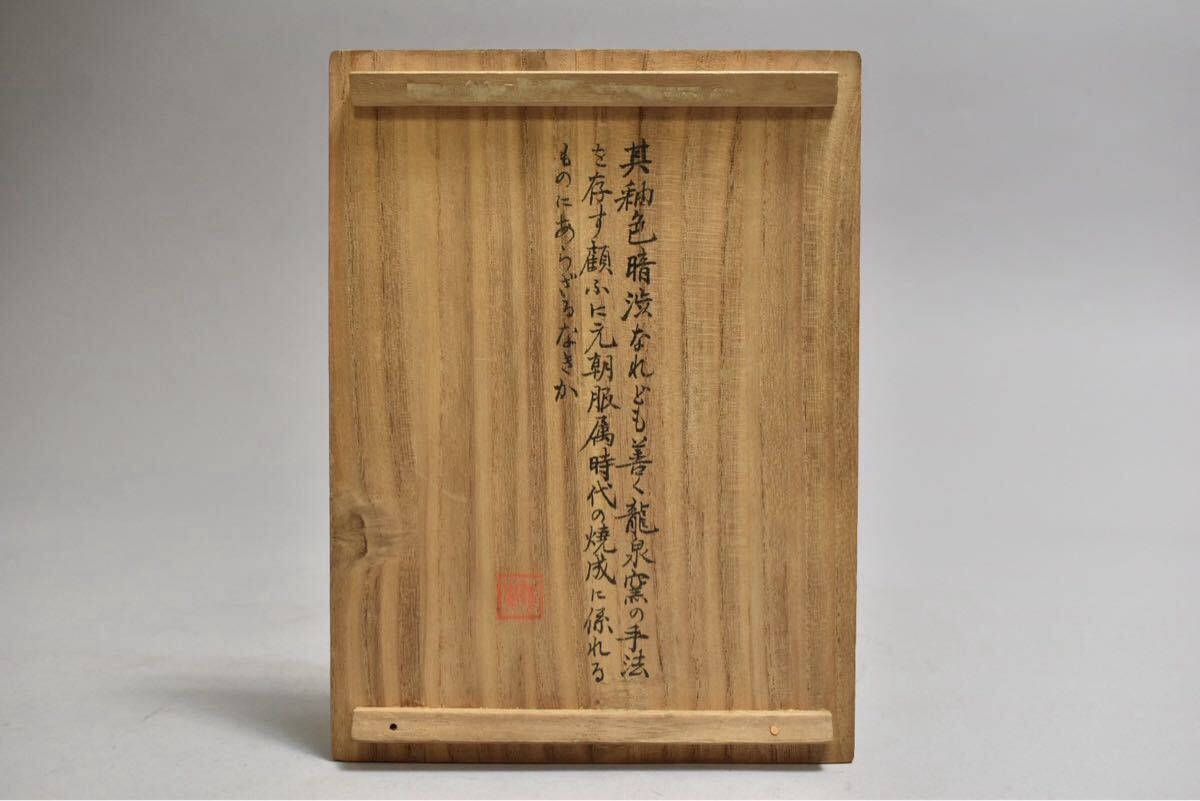 其釉色暗渋なれども善く龍泉窯の手法
を存す顧ふに元朝服属時代の焼成に係れる
ものにあらざるなきか